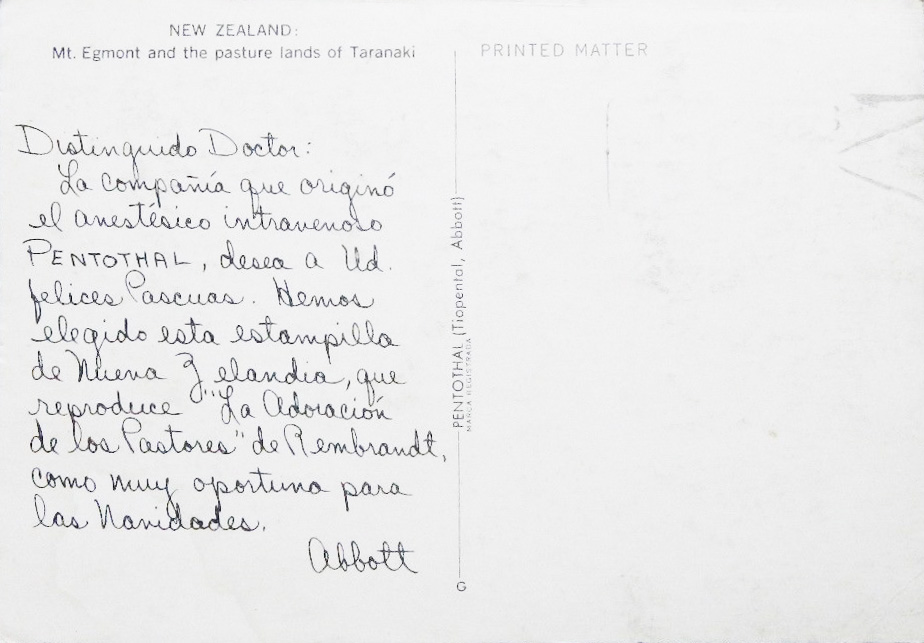 NEW ZEALAND:
Mt. Egmont and the pasture lands of Taranaki
Distinguido Doctor:
La compañía que originó
el anestésico intravenoso
PENTOTHAL, desea a Ud.
felices Pascuas. Hemos
elegido esta estampilla
de Nueva Zelandia, que
reproduce "La Adoración
de los Pastores" de Rembrandt,
como muy oportuna para
las Navidades.
Abbott
PENTOTHAL (Tiopental, Abbott)
MARCA REGISTRADA
G
PRINTED MATTER